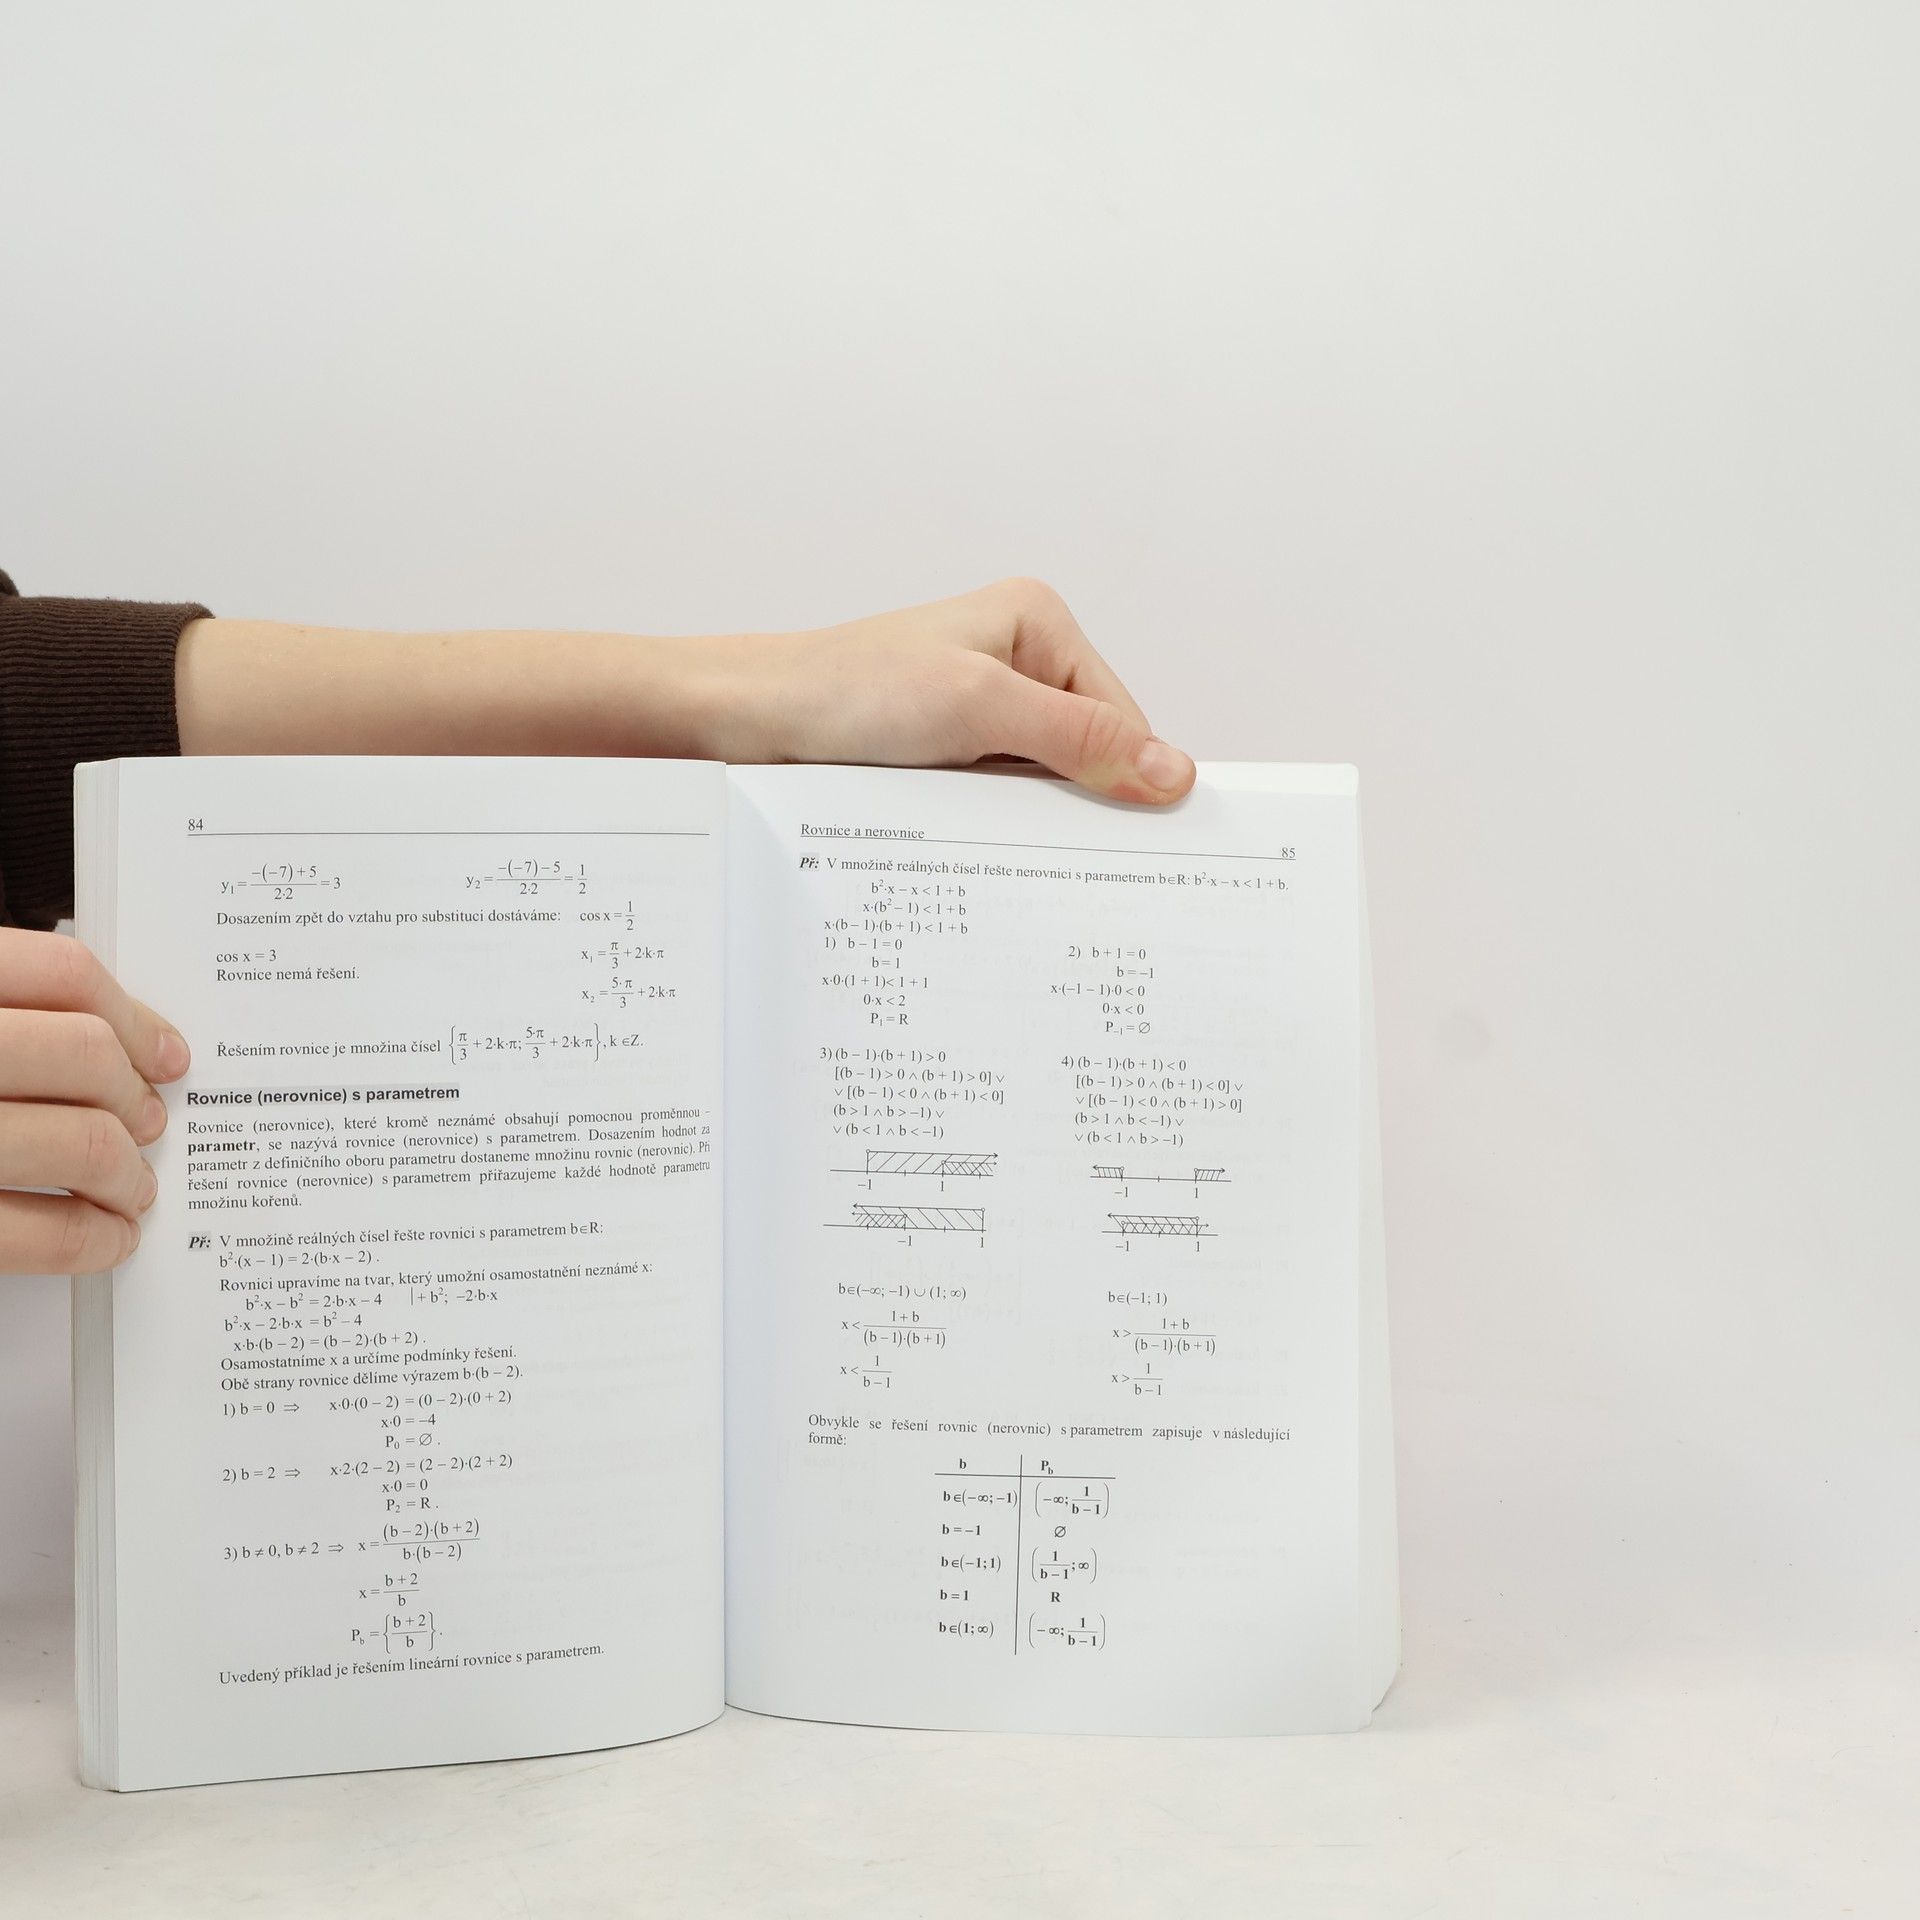 84
y₁ = (−(−7)+5)/(2·2) = 3    y₂ = (−(−7)−5)/(2·2) = 1/2
Dosazením zpět do vztahu pro substituci dostáváme: cos x = 1/2
cos x = 3    x₁ = π/3 + 2·k·π
Rovnice nemá řešení.
x₂ = 5·π/3 + 2·k·π
Řešením rovnice je množina čísel {π/3 + 2·k·π; 5·π/3 + 2·k·π}, k ∈Z.
Rovnice (nerovnice) s parametrem
Rovnice (nerovnice), které kromě neznámé obsahují pomocnou proměnnou –
parametr, se nazývá rovnice (nerovnice) s parametrem. Dosazením hodnot za
parametr z definičního oboru parametru dostaneme množinu rovnic (nerovnic). Při
řešení rovnice (nerovnice) s parametrem přiřazujeme každé hodnotě parametru
množinu kořenů.
Př: V množině reálných čísel řešte rovnici s parametrem b∈R:
b²·(x – 1) = 2·(b·x – 2) .
Rovnici upravíme na tvar, který umožní osamostatnění neznámé x:
b²·x – b² = 2·b·x – 4    |+ b²; –2·b·x
b²·x – 2·b·x = b² – 4
x·b·(b – 2) = (b – 2)·(b + 2) .
Osamostatníme x a určíme podmínky řešení.
Obě strany rovnice dělíme výrazem b·(b – 2).
1) b = 0 ⇒ x·0·(0 – 2) = (0 – 2)·(0 + 2)
x·0 = –4
P₀ = ∅ .
2) b = 2 ⇒ x·2·(2 – 2) = (2 – 2)·(2 + 2)
x·0 = 0
P₂ = R .
3) b ≠ 0, b ≠ 2 ⇒ x = (b – 2)·(b + 2)/(b·(b – 2))
x = (b + 2)/b
P_b = {(b + 2)/b}.
Uvedený příklad je řešením lineární rovnice s parametrem.
Rovnice a nerovnice
85
Př: V množině reálných čísel řešte nerovnici s parametrem b∈R: b²·x – x < 1 + b.
b²·x – x < 1 + b
x·(b² – 1) < 1 + b
x·(b – 1)·(b + 1) < 1 + b
1) b – 1 = 0
b = 1
x·0·(1 + 1)< 1 + 1
0·x < 2
P₁ = R
2) b + 1 = 0
b = –1
x·(–1 – 1)·0 < 0
0·x < 0
P₋₁ = ∅
3) (b – 1)·(b + 1) > 0
[(b – 1) > 0 ∧ (b + 1) > 0] ∨
∨ [(b – 1) < 0 ∧ (b + 1) < 0]
(b > 1 ∧ b > –1) ∨
∨ (b < 1 ∧ b < –1)
–1 1
–1 1
b∈(–∞; –1) ∪ (1; ∞)
x < (1 + b)/((b – 1)·(b + 1))
x < 1/(b – 1)
4) (b – 1)·(b + 1) < 0
[(b – 1) > 0 ∧ (b + 1) < 0] ∨
∨ [(b – 1) < 0 ∧ (b + 1) > 0]
(b > 1 ∧ b < –1) ∨
∨ (b < 1 ∧ b > –1)
–1 1
–1 1
b∈(–1; 1)
x > (1 + b)/((b – 1)·(b + 1))
x > 1/(b – 1)
Obvykle se řešení rovnic (nerovnic) s parametrem zapisuje v následující
formě:
b P_b
b∈(–∞; –1) (–∞; 1/(b – 1))
b = –1 ∅
b∈(–1; 1) (1/(b – 1); ∞)
b = 1 R
b∈(1; ∞) (– ∞; 1/(b – 1))